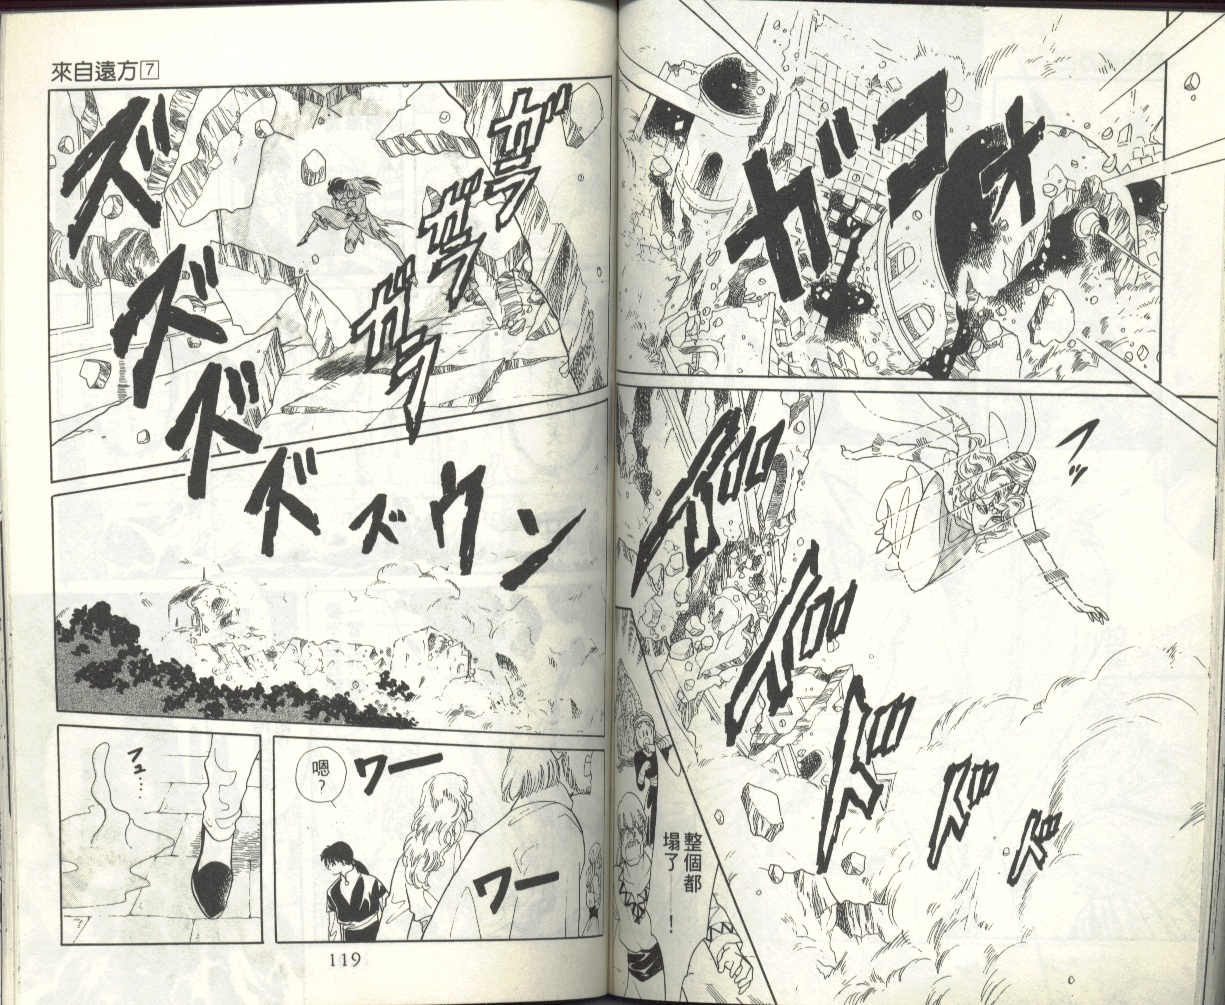 ガコォ
フッ
整個都
塌了！
來自遠方7
ガラ
ガラ
ガラ
ズズズズズウン
ワー
ワー
嗯？
フュ…
119